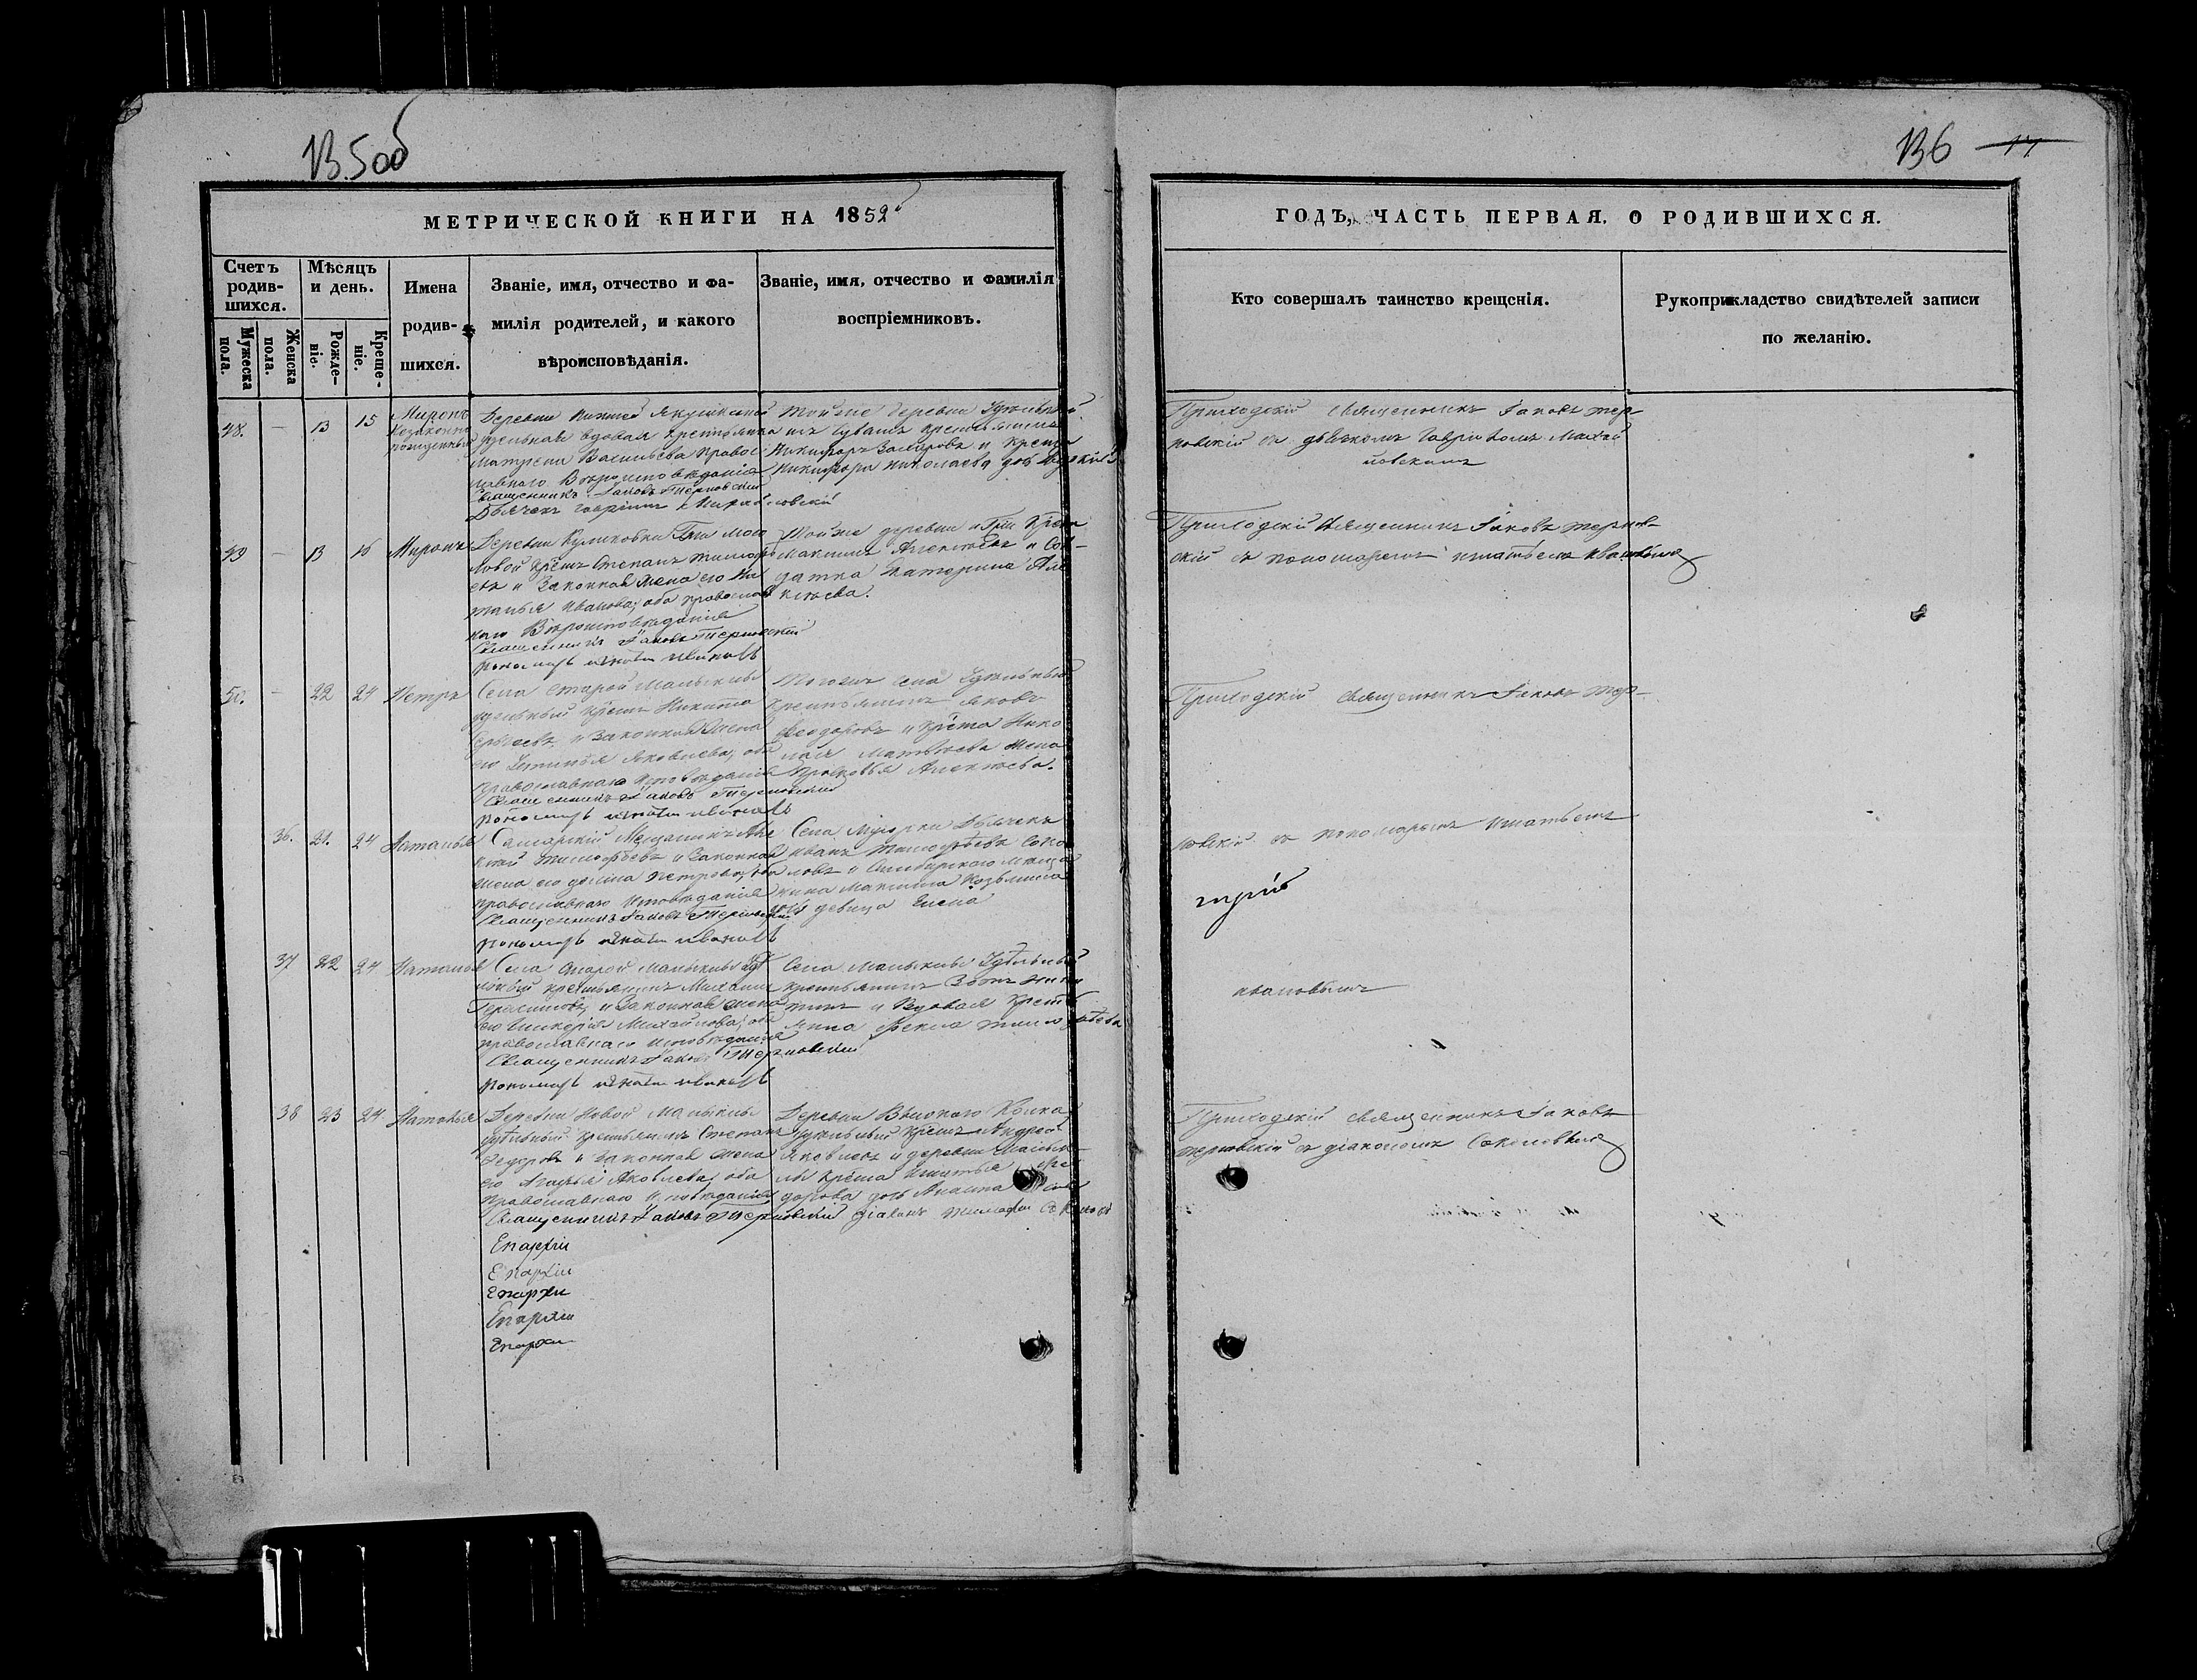 135 об
136 14
МЕТРИЧЕСКОЙ КНИГИ НА 1859
ГОДЪ, ЧАСТЬ ПЕРВАЯ. О РОДИВШИХСЯ.
Счетъ родив-шихся.
Мужеска пола.
Женска пола.
Мѣсяцъ и день.
Рожде-ніе.
Креще-ніе.
Имена
родив-
шихся.
Званіе, имя, отчество и фа-
милія родителей, и какого
вѣроисповѣданія.
Званіе, имя, отчество и фамилія
воспріемниковъ.
Кто совершалъ таинство крещенія.
Рукоприкладство свидѣтелей записи
по желанію.
48. — 13 15 Миронъ
незаконно
рожденный
Деревни
удельная вдовая крестьянка
Матрена Васильева правос
лавнаго Вѣроисповѣданія
Священникъ Іаковъ Терновскій
Дьячекъ Гавріилъ Михайловскій
Тойже деревни Удѣльный
изъ Чувашъ крестьянинъ
Никифоръ Захаровъ и крест
Никифора Николаева дочь
Приходскій Священникъ Іаковъ Тер-
новскій съ дьячкомъ Гавріиломъ Михай
ловскимъ
49 — 13 16 Миронъ
Деревни Куликовки Гжи
ловой крест. Степанъ Тимоѳе
евъ и Законная жена его На
талья Иванова, оба православ
наго Вѣроисповѣданія
Священникъ Іаковъ Терновскій
пономарь Игнатій Ивановъ
Тойже деревни и Гжи Крест
Максимъ Алексѣевъ и Сол-
датка Катерина Але
ксѣева.
Приходскій Священникъ Іаковъ Тернов-
скій съ пономаремъ Игнатьемъ Ивановымъ
50. — 22 24 Петръ
Села Старой Малыклы
удельный крест Никита
Сергѣевъ, и Законная Жена
его Устинья Яковлева, оба
православнаго исповѣданія
Священникъ Іаковъ Терновскій
пономарь Игнатій Ивановъ
Тогожъ села Удѣльный
крестьянинъ Яковъ
Ѳеодоровъ и крест Нико
лая Матвѣева Жена
Прасковья Алексѣева.
Приходскій Священникъ Іаковъ Тер-
36. 21. 24 Наталья
Самарскій Мещанинъ Але
ксѣй Тимоѳеевъ и Законная
жена его Домна Петрова, оба
православнаго исповѣданія
Священникъ Іаковъ Терновскій
пономарь Игнатій Ивановъ
Села Мусорки Дьячекъ
Иванъ Тимоѳеевъ Соко
ловъ и Симбирскаго мѣща
нина Максима Козьмина
дочь девица Елена
новскій съ пономаремъ Игнатьемъ
37 22 24 Наталья
Села Старой Малыклы Удѣ
льный крестьянинъ Михаилъ
Герасимовъ, и Законная жена
его Гликерія Михайлова, оба
православнаго исповѣданія
Священникъ Іаковъ Терновскій
пономарь Игнатій Ивановъ
Села Малыклы Удѣльный
крестьянинъ
и Вдовая Кресть
янка Ѳекла Тимоѳѣева
Ивановымъ
38 23 24 Наталья
Деревни Новой Малыклы
удѣльный крестьянинъ Степанъ
Ѳедоровъ и законная жена
его Агафья Яковлева, оба
православнаго исповѣданія
Священникъ Іаковъ Терновскій діаконъ Тимоѳей Соколовъ
Деревни Высокаго Колка
удѣльный крест Андрей
Яковлевъ и деревни Малык-
лы крест Игнатья Ѳе
дорова дочь Акилина
Приходскій священникъ Іаковъ
Терновскій съ діакономъ Соколовымъ
Епархіи
Епархіи
Епархіи
Епархіи
Епархіи